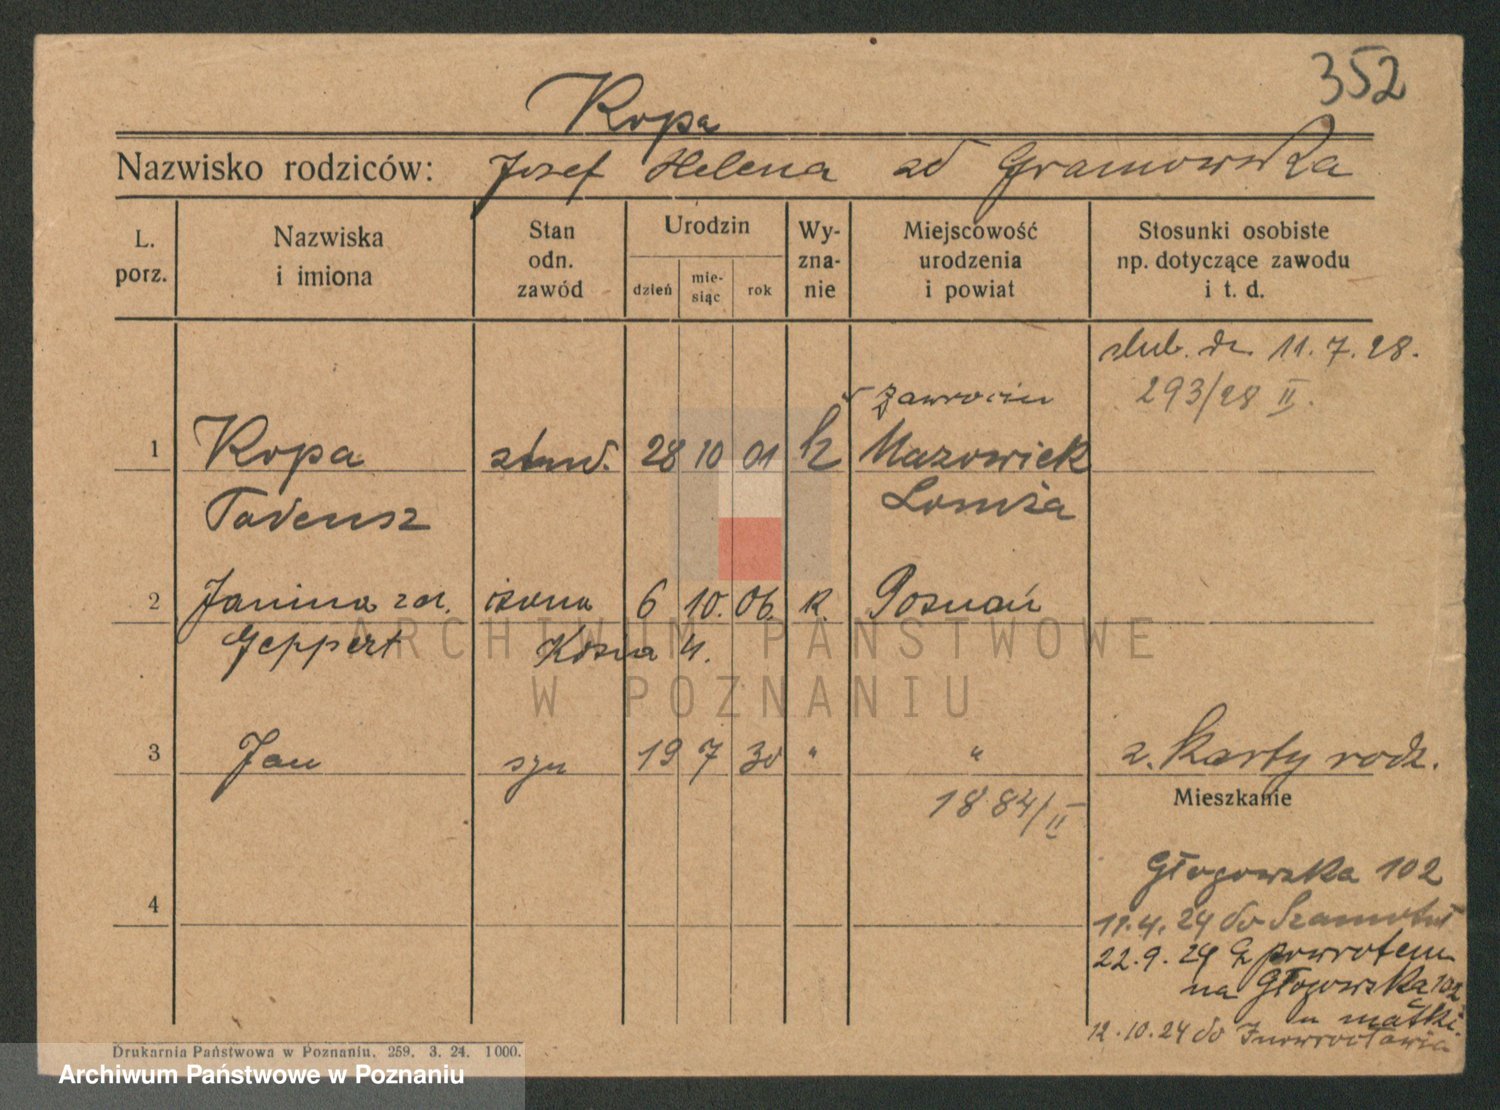 352
Kopa
Nazwisko rodziców: Josef Helena zd Gramowska
L. porz.
Nazwiska i imiona
Stan odn. zawód
Urodzin
dzień
mie-siąc
rok
Wy-zna-nie
Miejscowość urodzenia i powiat
Stosunki osobiste np. dotyczące zawodu i t. d.
ślub. dn 11.7.28.
293/28 II.
1 Kopa stud. 28 10 01 k Mazowieck
Tadeusz Lomża
2 Janina zd. żona 6 10. 06. k. Posnań
Geppert 4.
3 Jan syn 19 7 30 " " z. Karty rodz.
1884/II
Mieszkanie
4
Głogowska 102
11.4.24 do Szamotuł
22.9.24 z powrotem
na Głogowska 102
u matki.
12.10.24 do Inowrocławia
ARCHIWUM PAŃSTWOWE
W POZNANIU
Drukarnia Państwowa w Poznaniu, 259. 3. 24. 1000.
Archiwum Państwowe w Poznaniu